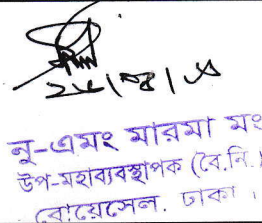 নু-এমং মারমা মং
উপ-মহাব্যবস্থাপক (বৈ.নি.)
বোয়েসেল, ঢাকা ।